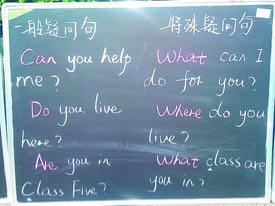 一般疑问句
Can you help
me?
Do you live
here?
Are you in
Class Five?
特殊疑问句
What can I
do for you?
Where do you
live?
What class are
you in?